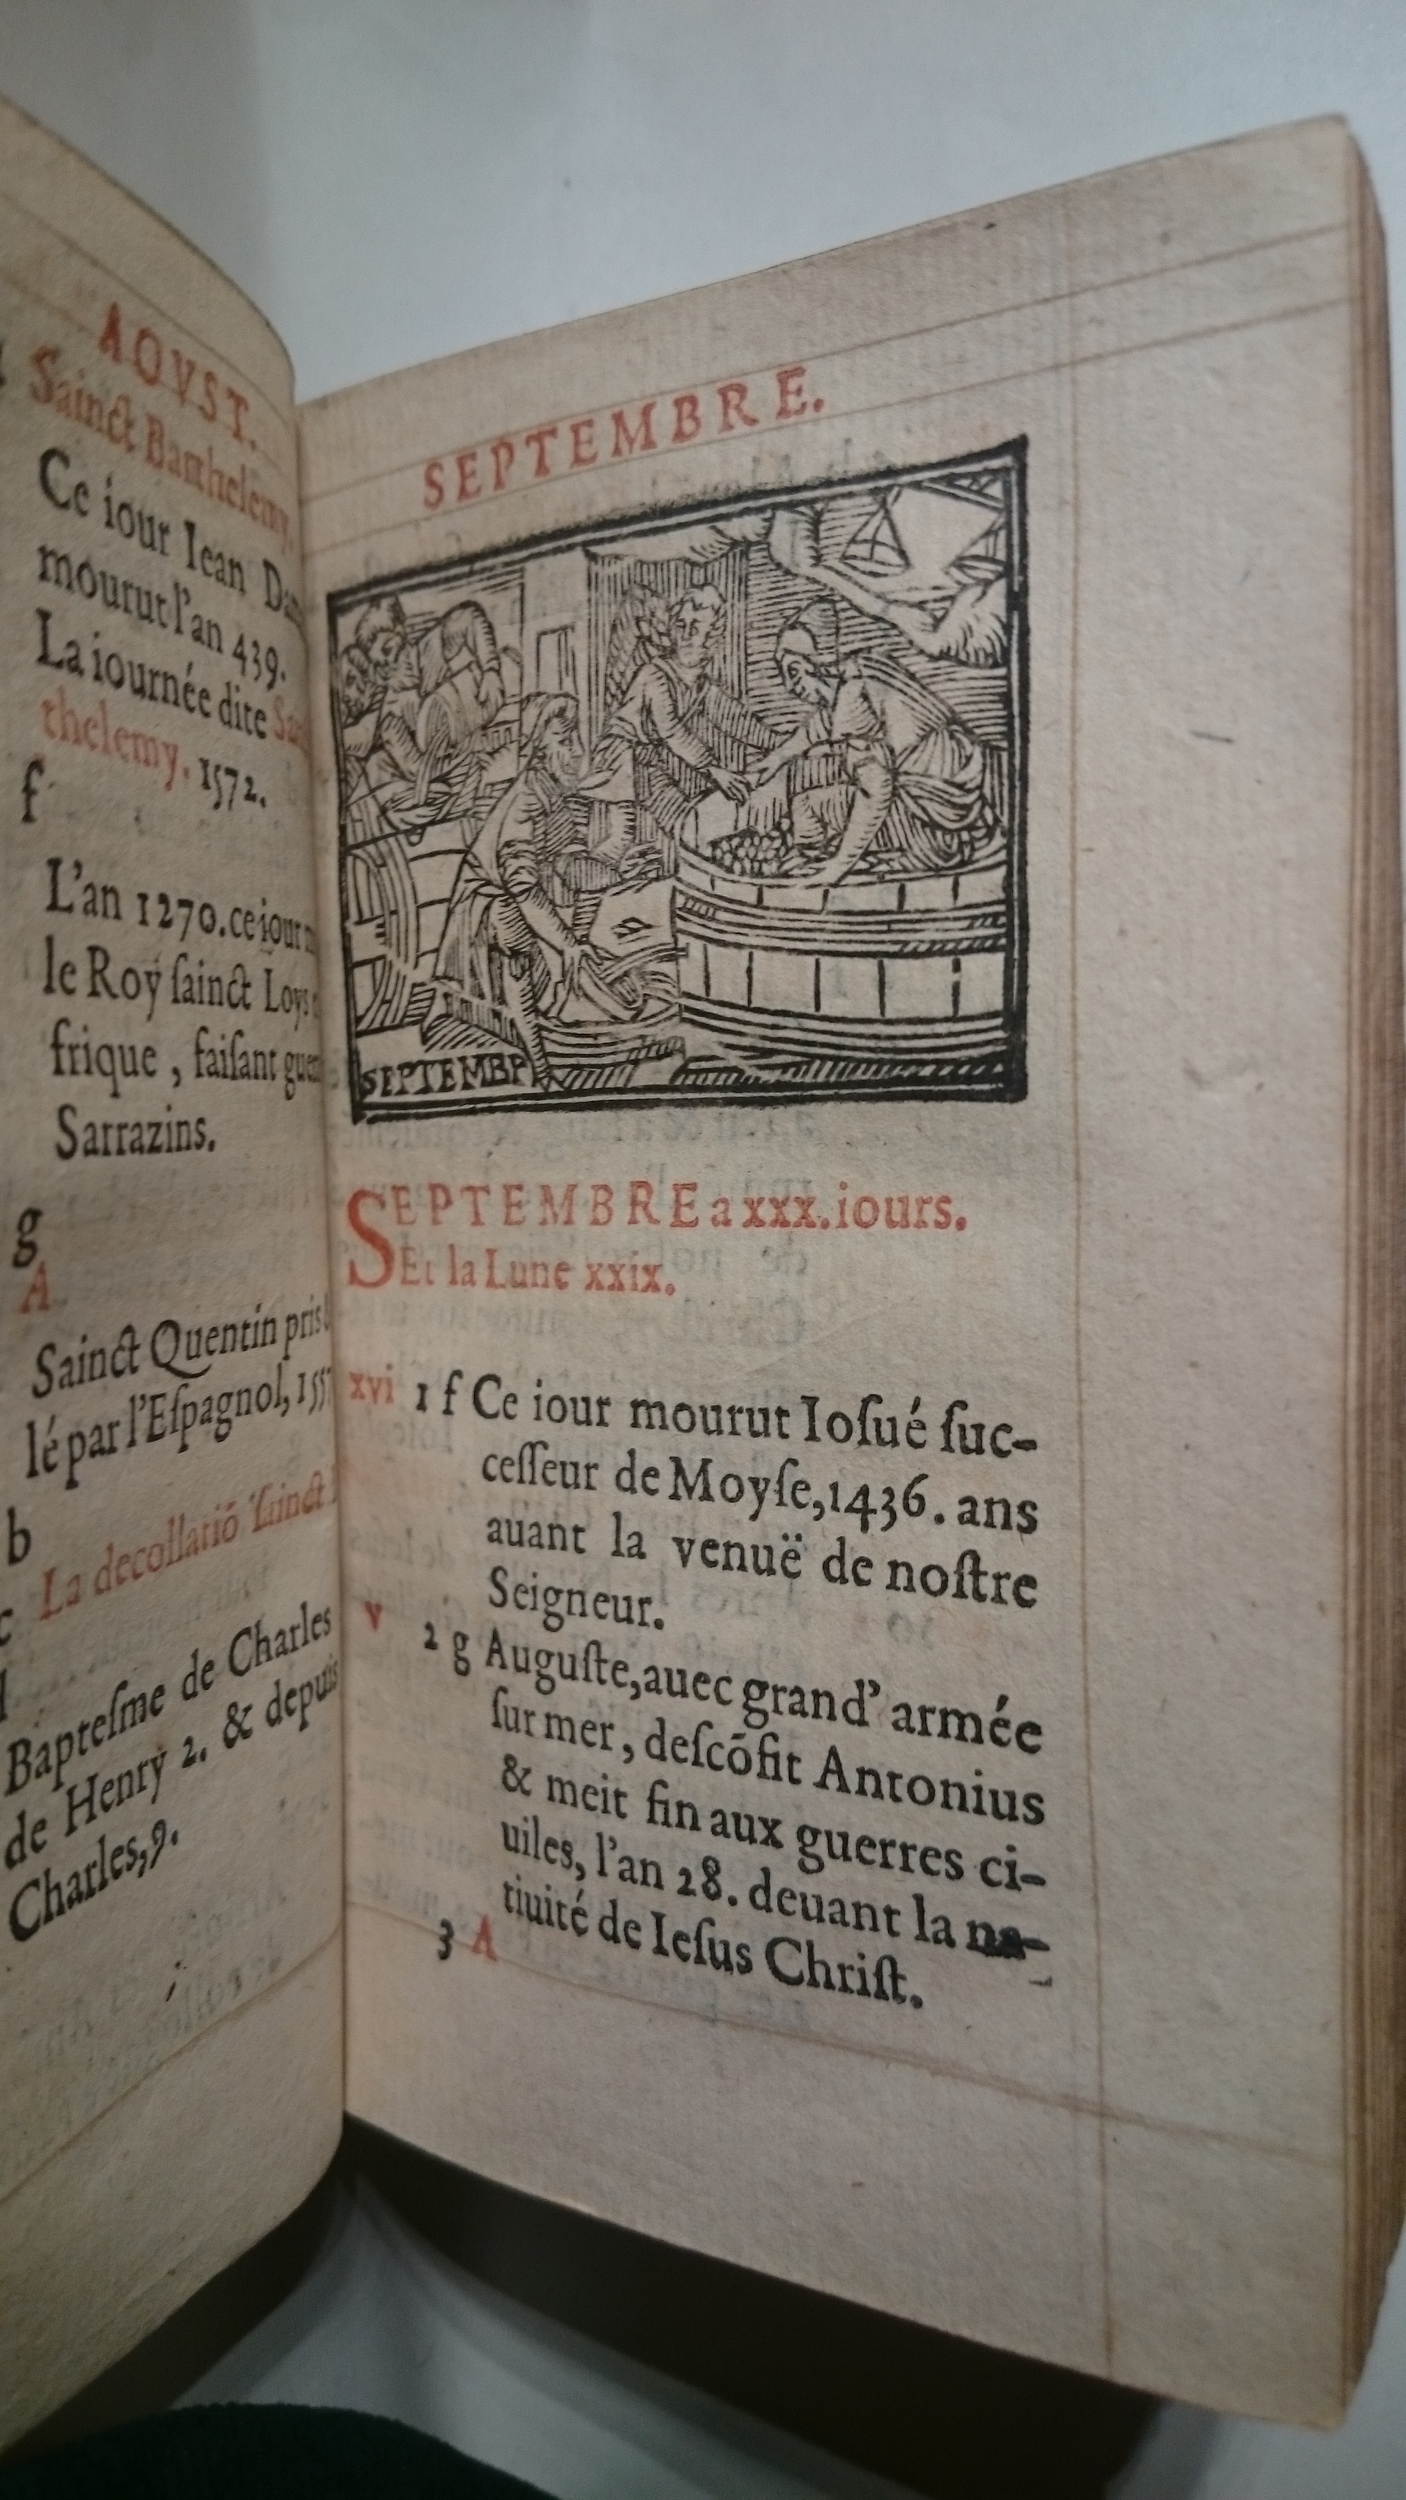 AOVST.
Sainct Barthelemy.
Ce iour Iean
mourut l'an 439.
La iournée dite
thelemy. 1572.
f
L'an 1270. ce iour
le Roy ſainct Loys
frique, faiſant
Sarrazins.
g
A
Sainct Quentin pris
lé par l'Eſpagnol,
b
La decollatiõ ſainct
c
Bapteſme de Charles
de Henry 2. & depuis
Charles, 9.
SEPTEMBRE.
SEPTEMBR
SEPTEMBRE a xxx. iours.
Et la Lune xxix.
xvi 1 f Ce iour mourut Ioſué ſuc-
ceſſeur de Moyſe, 1436. ans
auant la venuë de noſtre
Seigneur.
v 2 g Auguſte, auec grand' armée
ſur mer, deſcõfit Antonius
& meit fin aux guerres ci-
uiles, l'an 28. deuant la na-
tiuité de Ieſus Chriſt.
3 A